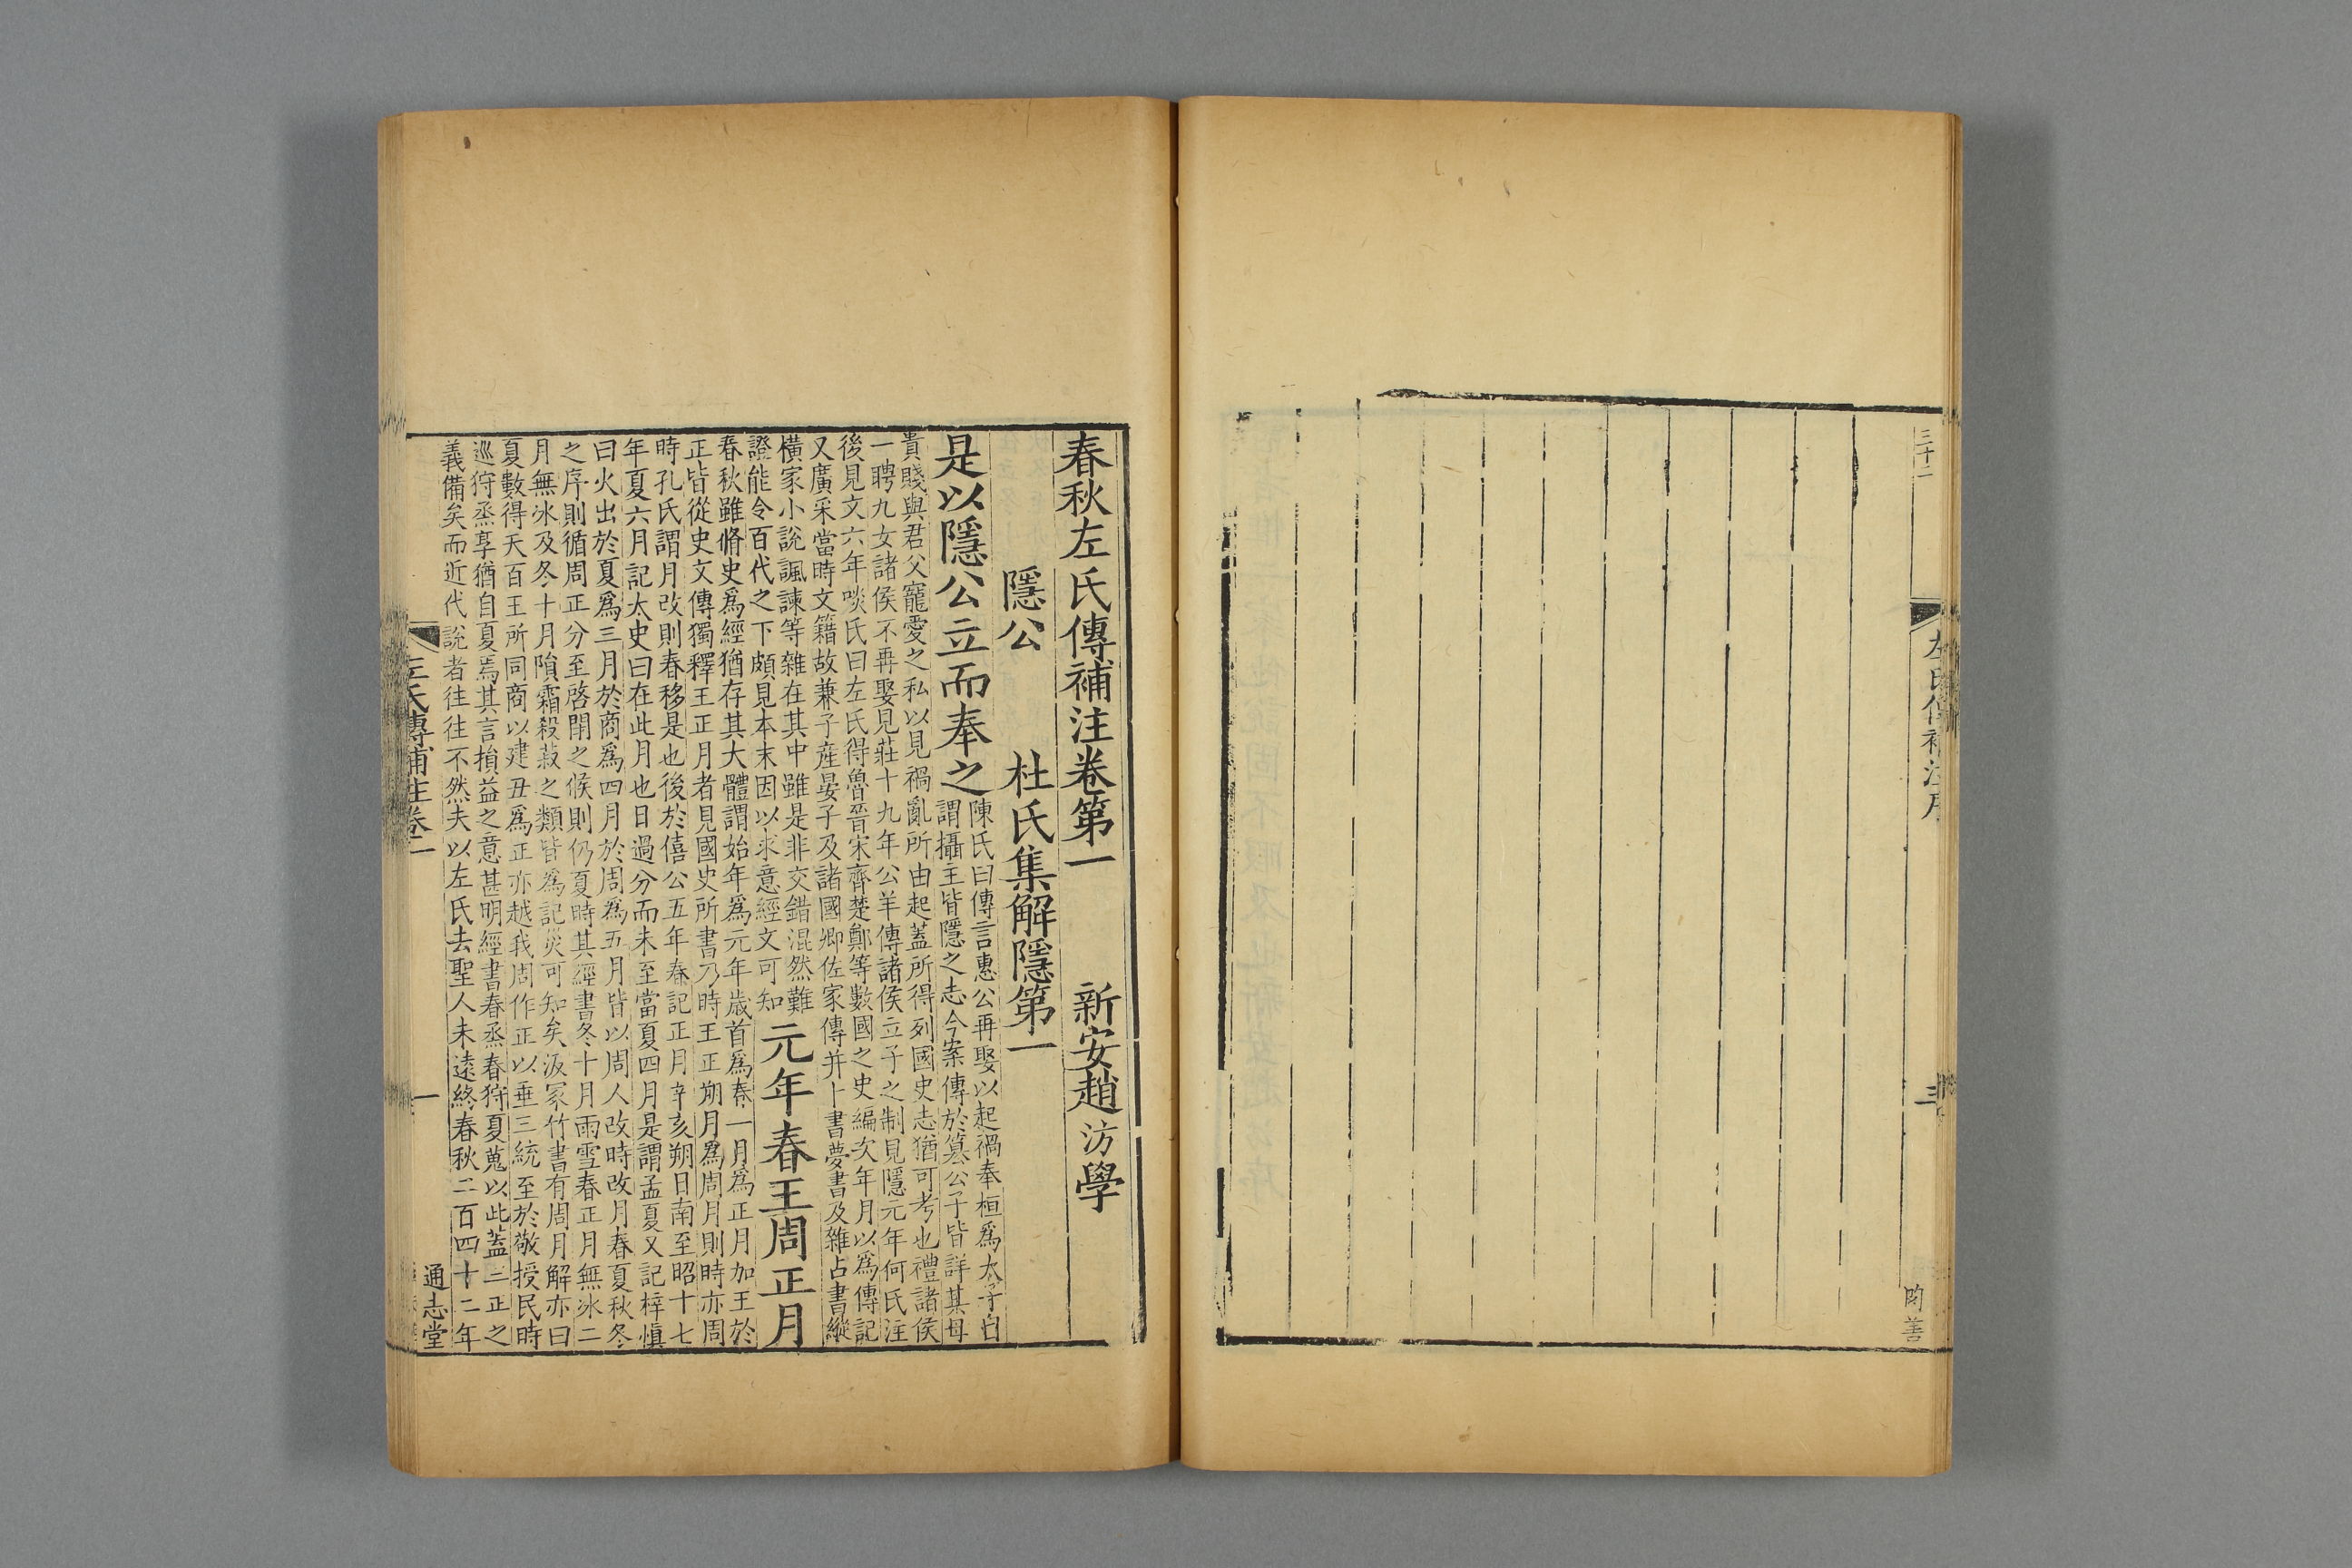 三十二
左氏傳補注序
三
春秋左氏傳補注卷第一　新安趙汸學
隱公　杜氏集解隱第一
是以隱公立而奉之
陳氏曰傳言惠公再娶以起禍奉桓爲太子自
謂攝主皆隱之志今案傳於篡公子皆詳其母
貴賤與君父寵愛之私以見禍亂所由起蓋所得列國史志猶可考也禮諸侯
一聘九女諸侯不再娶見莊十九年公羊傳諸侯立子之制見隱元年何氏注
後見文六年啖氏曰左氏得魯晉宋齊楚鄭等數國之史編次年月以爲傳記
又廣采當時文籍故兼子産晏子及諸國卿佐家傳并卜書夢書及雜占書縱
橫家小說諷諫等雜在其中雖是非交錯混然難
證能令百代之下頗見本末因以求意經文可知
元年春王周正月
春秋雖脩史爲經猶存其大體謂始年爲元年歲首爲春一月爲正月加王於
正皆從史文傳獨釋王正月者見國史所書乃時王正朔月爲周月則時亦周
時孔氏謂月改則春移是也後於僖公五年春記正月辛亥朔日南至昭十七
年夏六月記太史曰在此月也日過分而未至當夏四月是謂孟夏又記梓慎
曰火出於夏爲三月於商爲四月於周爲五月皆以周人改時改月春夏秋冬
之序則循周正分至啓閉之候則仍夏時其經書冬十月雨雪春正月無冰二
月無冰及冬十月隕霜殺菽之類皆爲記災可知矣汲冢竹書有周月解亦曰
夏數得天百王所同商以建丑爲正亦越我周作正以垂三統至於敬授民時
巡狩烝享猶自夏焉其言損益之意甚明經書春烝春狩夏蒐以此蓋三正之
義備矣而近代說者往往不然夫以左氏去聖人未遠終春秋二百四十二年
左氏傳補注卷一
一
通志堂